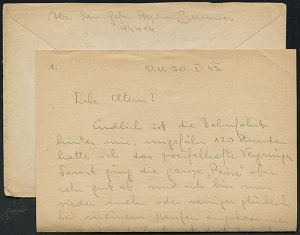 Abs. San. Gefr. Stephan
44414
1.
O.U. 30. I. 43.
Liebe Eltern!
Endlich ist die Bahnfahrt
hinter mir, ungefähr 120 Stunden
hatte ich das zweifelhafte Vergnügen
Sonst ging die ganze Reise aber
sehr gut ab und ich bin nun
wieder mehr oder weniger glücklich
bei meinem Haufen angekommen